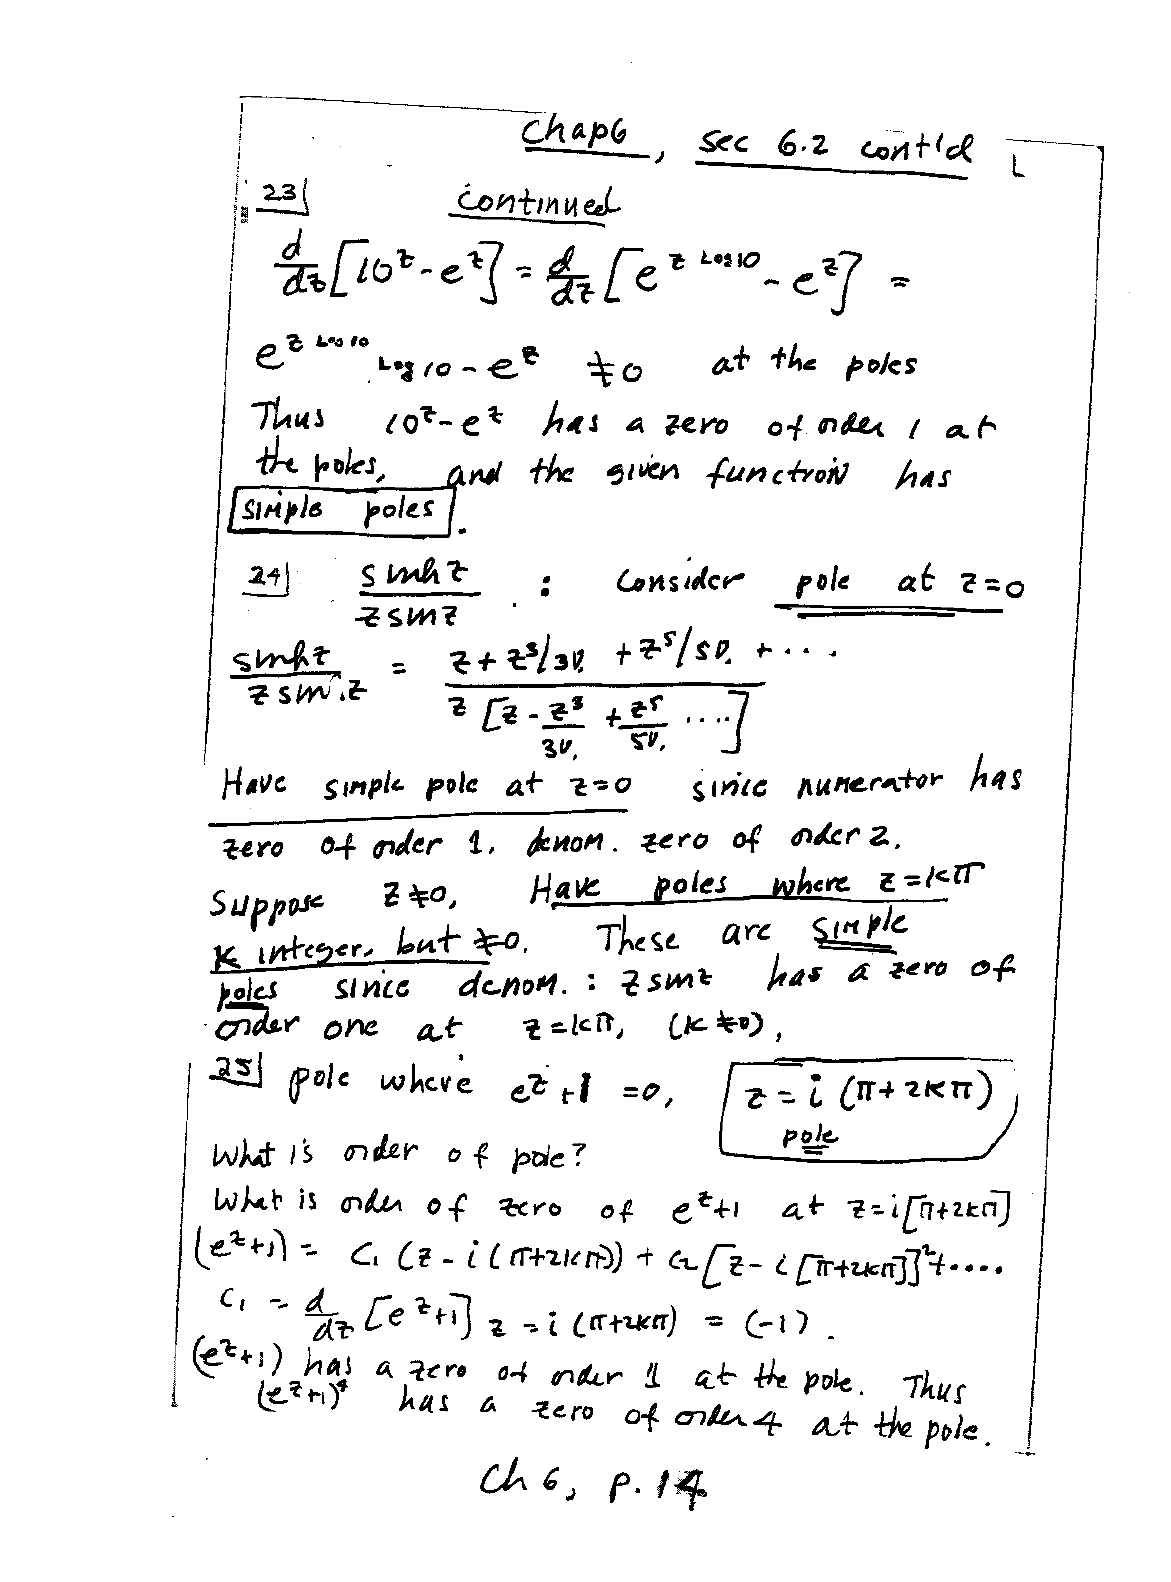 Chap 6, sec 6.2 cont'd
23) continued
d/dz [10^z - e^z] = d/dz [e^{z Log 10} - e^z] =
e^{z Log 10} Log 10 - e^z ≠ 0 at the poles
Thus 10^z - e^z has a zero of order 1 at
the poles, and the given function has
simple poles.
24) sinh z / z sin z : Consider pole at z=0
sinh z / z sin z = z + z^3/3! + z^5/5! + .... / z [z - z^3/3! + z^5/5! ....]
Have simple pole at z=0 since numerator has
zero of order 1, denom. zero of order 2.
Suppose z≠0, Have poles where z=kπ
k integer, but ≠0. These are simple
poles since denom. : z sin z has a zero of
order one at z=kπ, (k≠0),
25) pole where e^z+1 =0, z = i (π+2kπ)
pole
What is order of pole?
What is order of zero of e^z+1 at z=i[π+2kπ]
(e^z+1) = c_1 (z - i(π+2kπ)) + c_2 [z - i[π+2kπ]]^2 + ....
c_1 = d/dz [e^z+1] z = i(π+2kπ) = (-1).
(e^z+1) has a zero of order 1 at the pole. Thus
(e^z+1)^4 has a zero of order 4 at the pole.
Ch 6, p. 14